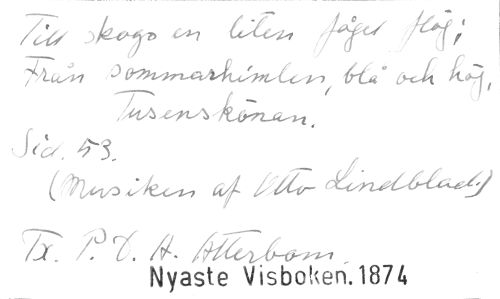 Till skogs en liten fågel flög;
Från sommarhimlen, blå och hög,
Tusenskönan.
Sid. 53.
(Musiken af Otto Lindblad.)
Tx. P. D. A. Atterbom.
Nyaste Visboken. 1874